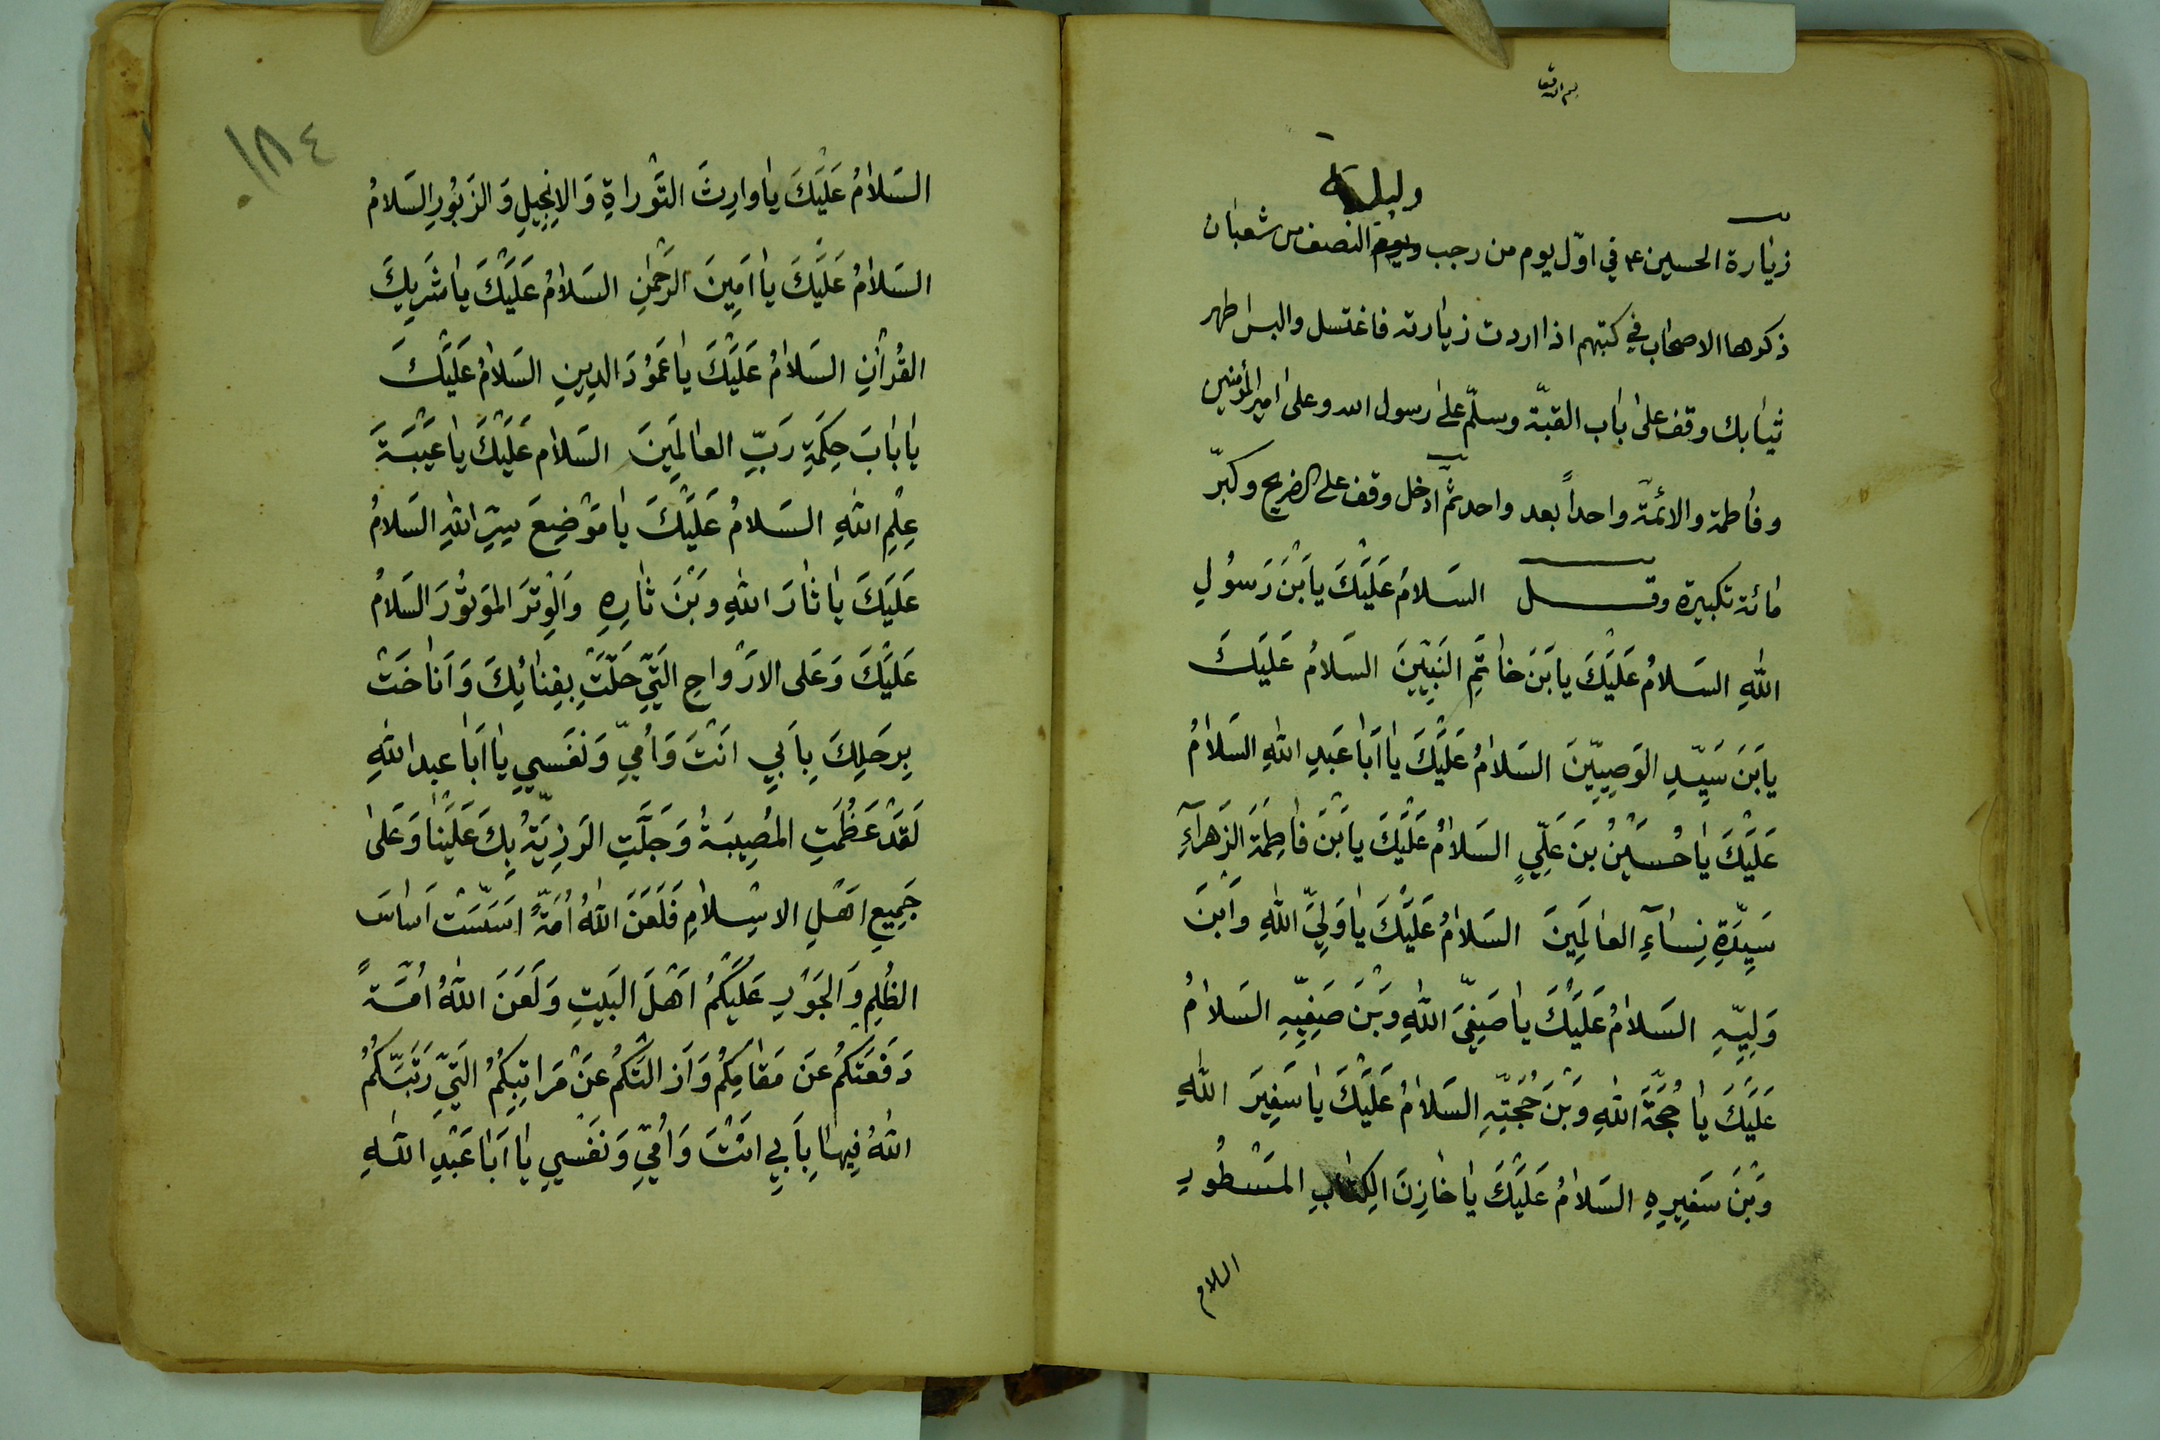 وليلة
زيارة الحسين ع في اوّل يوم من رجب ويوم النصف من شعبان
ذكرها الاصحاب في كتبهم اذا اردت زيارته فاغتسل والبس اطهر
ثيابك وقف على باب القبّة وسلّم على رسول الله وعلى امير المؤمنين
وفاطمة والائمّة واحداً بعد واحد ثمّ ادخل وقف على الضريح وكبّر
مائة تكبيرة وقـــل السَلامُ عَلَيْكَ يابْنَ رَسوُلِ
اللهِ السَلامُ عَلَيْكَ يابْنَ خاتَمِ النَبِيّينَ السَلامُ عَلَيكَ
يابْنَ سَيّدِ الوَصِيّينَ السَلامُ عَلَيْكَ يا اَبا عَبدِ اللهِ السَلامُ
عَلَيْكَ يا حُسَيْنُ بنَ عَلِيٍّ السَلامُ عَلَيْكَ يابْنَ فاطِمَةَ الزَهرآءِ
سَيِّدَةِ نِسآءِ العالَمِينَ السَلامُ عَلَيْكَ يا وَلِيَّ اللهِ وابْنَ
وَلِيِّهِ السَلامُ عَلَيْكَ يا صَفِيَّ اللهِ وَبْنَ صَفِيِّهِ السَلامُ
عَلَيْكَ يا حُجَّةَ اللهِ وَبْنَ حُجَّتِهِ السَلامُ عَلَيْكَ يا سَفِيرَ اللهِ
وَبْنَ سَفِيرِهِ السَلامُ عَلَيْكَ يا خازِنَ الكِتابِ المَسْطُورِ
السلام
١٨٤
السَلامُ عَلَيْكَ يا وارِثَ التَوْراةِ وَالاِنجِيلِ وَ الزَبوُرِ السَلامُ
السَلامُ عَلَيْكَ يا اَمِينَ الرَحْمنِ السَلامُ عَلَيْكَ يا شَرِيكَ
القُرْانِ السَلامُ عَلَيْكَ يا عَموُدَ الدِينِ السَلامُ عَلَيْكَ
يا بابَ حِكمَةِ رَبِّ العالَمِينَ السَلام عَلَيْكَ يا عَيْبَةَ
عِلْمِ اللهِ السَلامُ عَلَيْكَ يا مَوْضِعَ سِرِّ اللهِ السَلامُ
عَلَيكَ يا ثارَ اللهِ وبْنَ ثارِهِ والوِترَ الموَتوُرَ السَلامُ
عَلَيْكَ وَعَلى الارْواحِ الَتي حَلَّتْ بِفِنائِكَ وَ اَناخَتْ
بِرحَلِكَ بِاَبي انْتَ وَ اُمّي وَ نَفْسي يا اَبا عبد اللهِ
لَقَدْ عَظُمَتِ المُصِيبَةُ وَجَلَّتِ الرَزِيّةُ بِكَ عَلَيْنا وَعَلى
جَمِيعِ اَهْلِ الاسْلامِ فَلَعَنَ اللهُ اُمَّةً اسَّسَتْ اَساسَ
الظُلمِ وَالجَوْرِ عَلَيْكُمْ اَهْلَ البَيتِ وَ لَعَنَ اللهُ اُمَّةً
دَفَعَتْكُمْ عَنْ مَقامِكُمْ وَ اَزالَتْكُمْ عَنْ مَراتِبِكُمُ الَتي رَتَبَّكُمُ
اللهُ فِيها بِاَبي انْتَ وَ اُمّي وَ نَفْسي يا اَبا عَبْدِ اللهِ